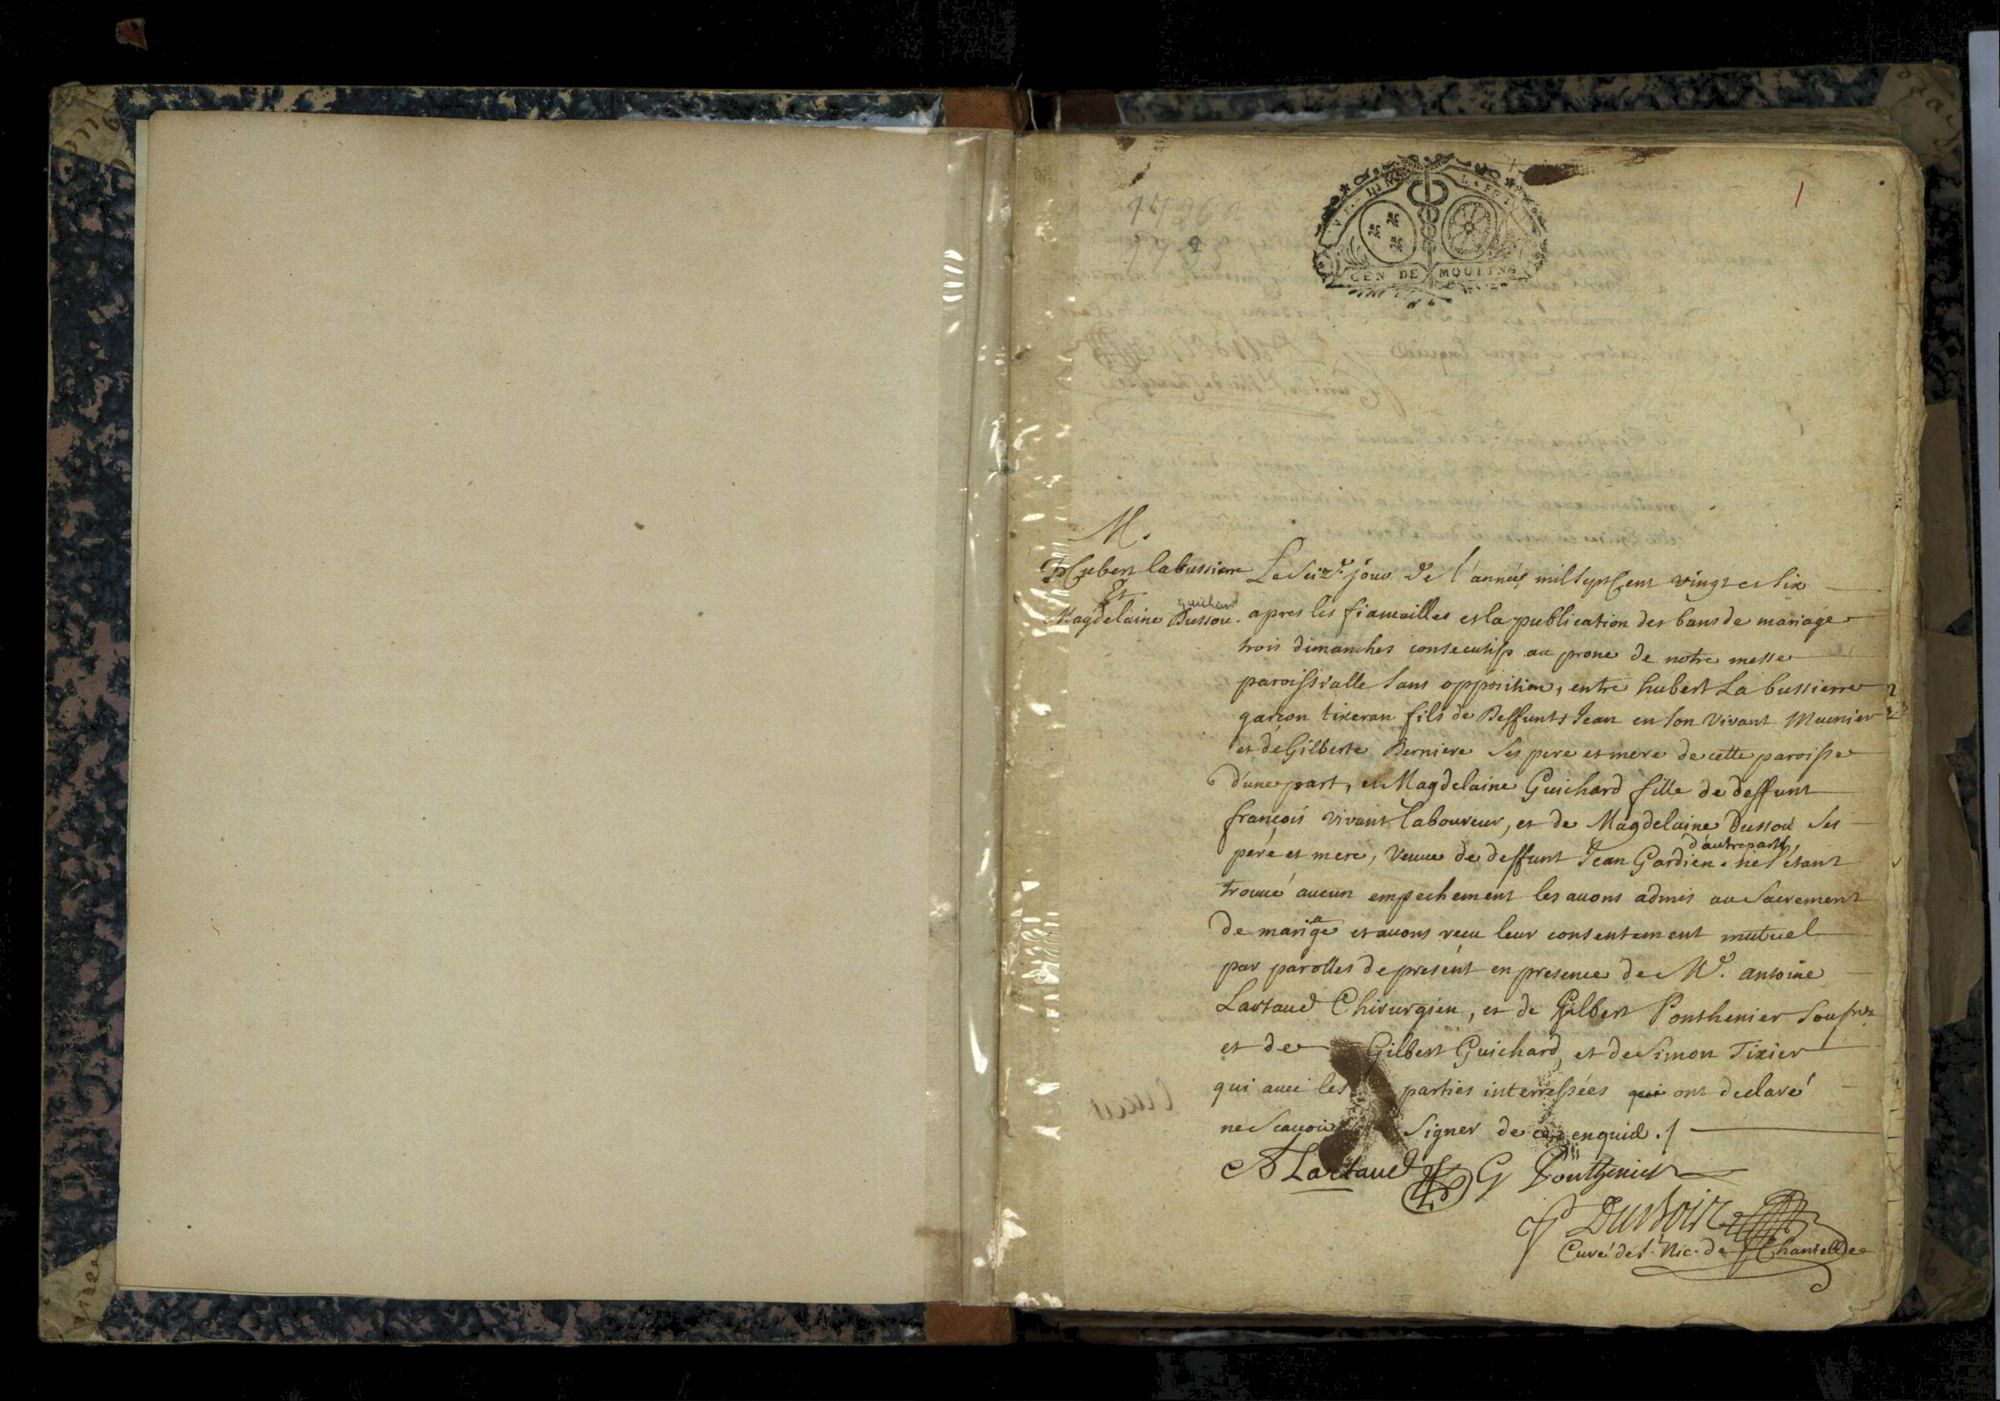 1
GEN DE MOULINS
M.
Hubert labussiere
Et
guichard
Magdelaine Dussou.
Le seiz.e jour de l'année mil sept cent vingt et six
apres les fiancailles et la publication des bans de mariage
trois dimanches consecutifs au prone de notre messe
paroissialle sans opposition, entre hubert La bussierre
garcon tixeran fils de Deffunts Jean en son vivant Meunier
et de Gilberte Berniere ses pere et mere de cette paroisse
d'une part, et Magdelaine Guichard fille de deffunt
françois vivant laboureur, et de Magdelaine Dussou ses
d'autre part,
pere et mere, veuve de deffunt Jean Gardien. ne s'étant
trouvé aucun empechement les avons admis au Sacrement
de mariage et avons recu leur consentement mutuel
par parolles de present en presence de Mr. antoine
Lartaud Chirurgien, et de Gilbert Ponthenier sousnez
et de Gilbert Guichard, et de Simon Tixier
qui avec les parties interressées qui ont declaré
ne scavoir signer de ce enquid. /
A Lartaud G Ponthenier
P Dursoir
Curé de St. Nic. de Chantelle